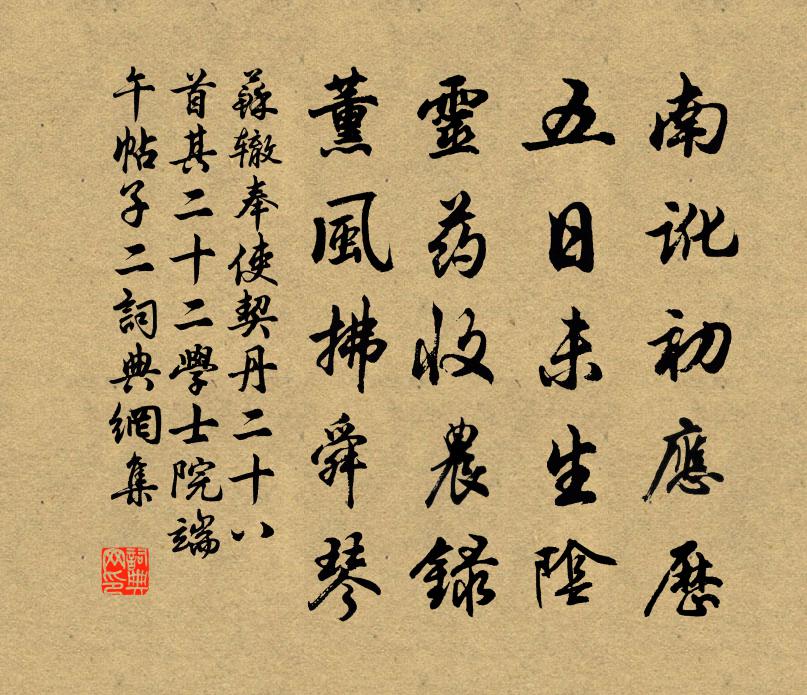 南訛初應曆
五日未生陰
靈药收農錄
薰風拂舜琴
蘇辙奉使契丹二十八
首其二十二學士院端
午帖子二詞典網集
詞典网印